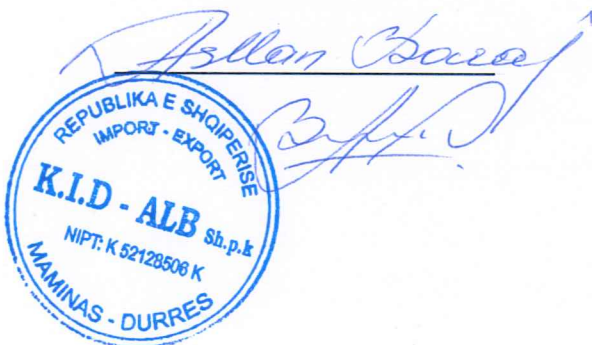 Asllan
REPUBLIKA E SHQIPERISE
IMPORT - EXPORT
K.I.D - ALB Sh.p.k
NIPT: K 52128506 K
MAMINAS - DURRES